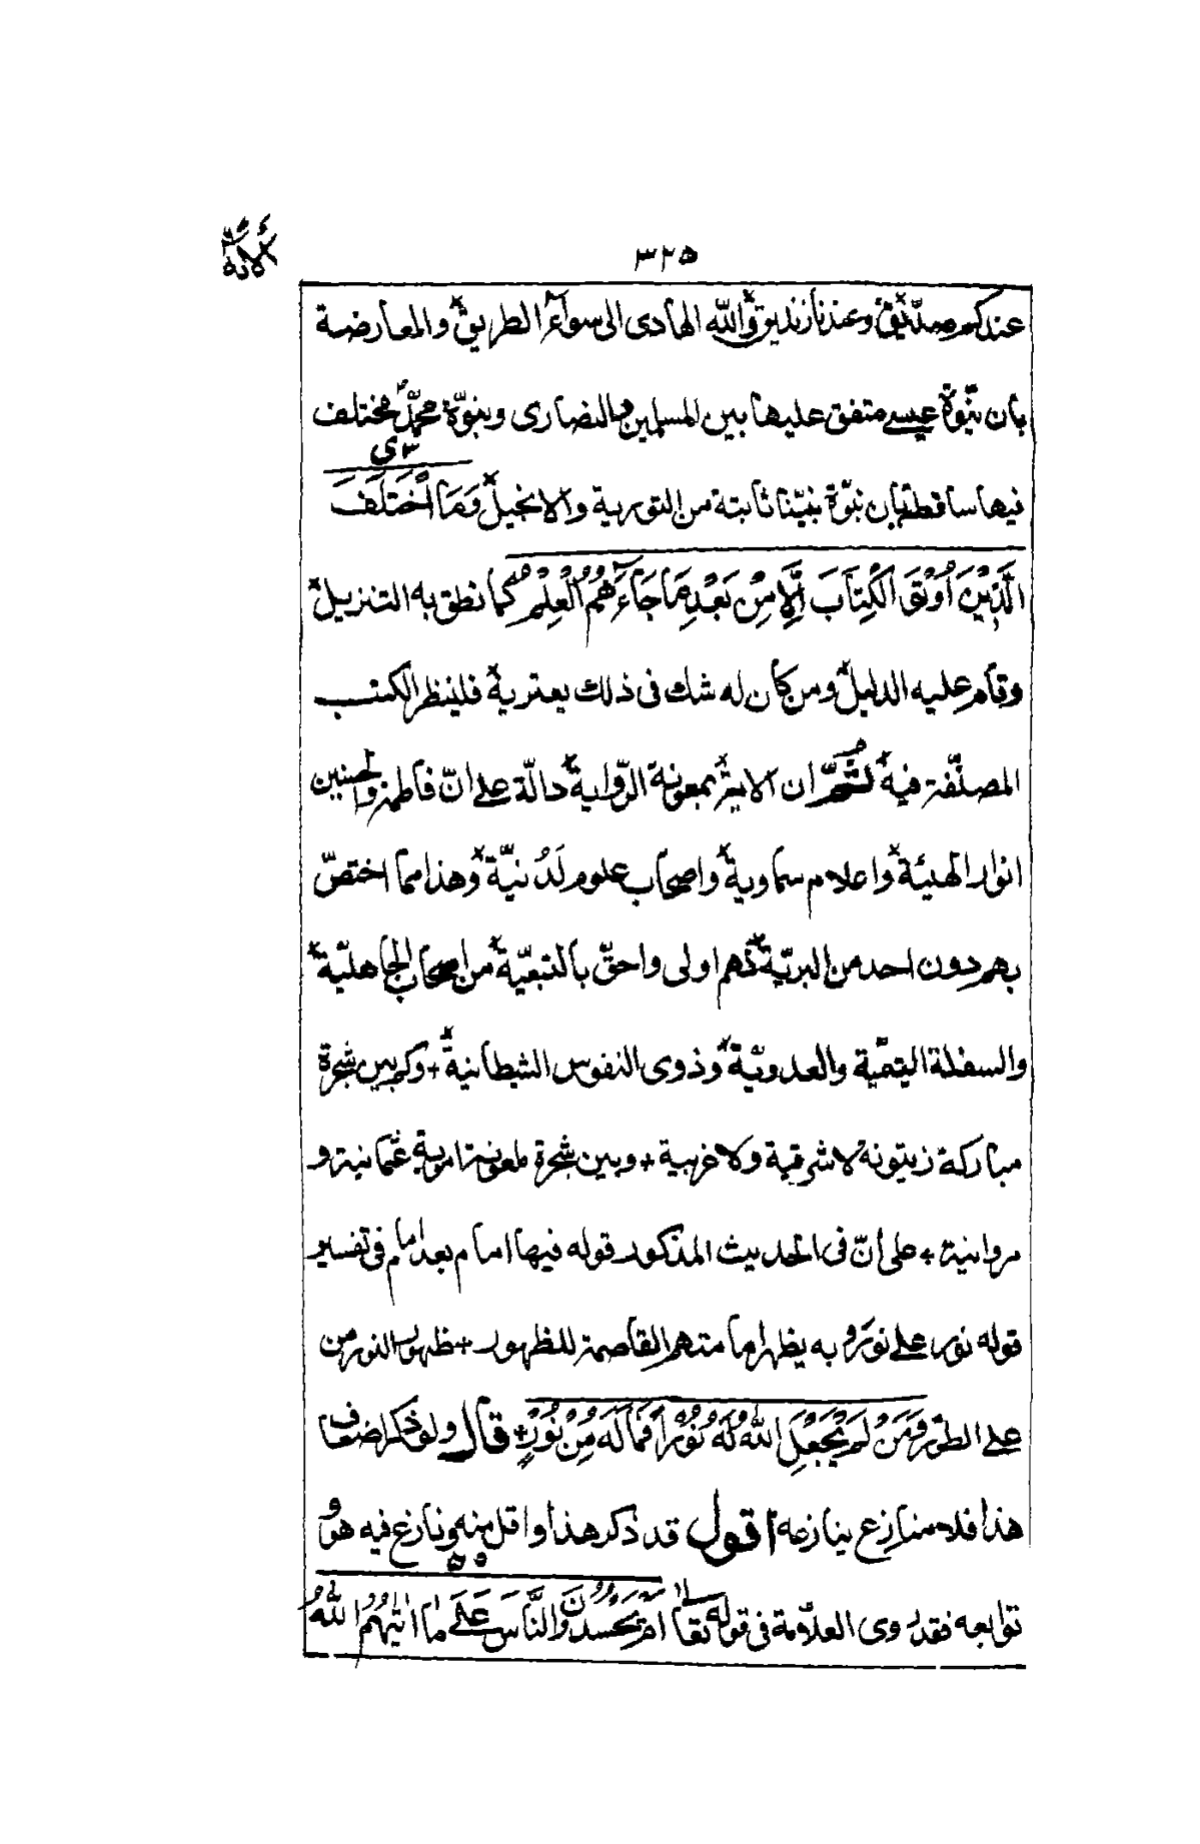 ٣٢٥
عندكم صدّيق وعندنا زنديق والله الهادى الى سواء الطريق والمعارضة
بان نبوّة عيسے متفق عليها بين المسلمين والنصارى ونبوّة محمّد مختلف
فيها ساقطة بان نبوّة نبيّنا ثابتة من التورية والانجيل وَمَا اخْتَلَفَ
الَّذِيْنَ اُوْتُوا الْكِتَابَ اِلَّا مِنْ بَعْدِ مَا جَاءَهُمُ الْعِلْمُ كما نطق به التنزيل
وقام عليه الدليل ومن كان له شك فى ذلك يعتريه فلينظر الكتب
المصنّفة فيه ثمّ ان الاية بمعونة الرّواية دالّة على انّ فاطمة والحسنين
انوار الهيئة واعلام سماوية واصحاب علوم لَدُنيّة وهذا مما اختصّ
بهم دون احد من البريّة فهم اولى واحقّ بالتبعيّة من اصحاب الجاهليّة
والسفلة التيميّة والعدويّة وذوى النفوس الشيطانية + وكم بين شجرة
مباركة زيتونة لا شرقية ولا غربية + وبين شجرة ملعونة اموية عثمانية و
مروانية + على انّ فى الحديث المذكور قوله فيها امام بعد امام فى تفسير
قوله نور على نور وبه يظهر امامتهم القاصمة للظهور + ظهور النور من
على الطور وَمَنْ لَمْ يَجْعَلِ اللهُ لَهُ نُوْرًا فَمَا لَهُ مِنْ نُوْرٍ + قال ولو ذكر اضعاف
هذا فلا منازع ينازعه اقول قد ذكر هذا واقل منه ونازع فيه هو و
توابعه فقد روى العلّامة فى قوله تعالى اَمْ يَحْسُدُوْنَ النَّاسَ عَلٰى مَا اٰتٰيهُمُ اللهُ